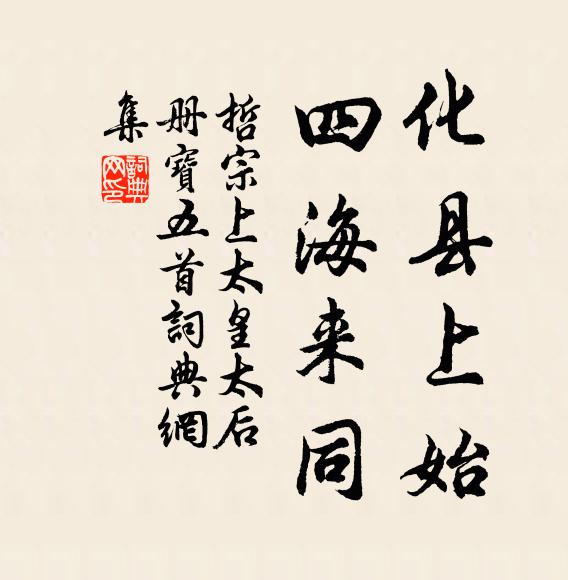 化县上始
四海来同
哲宗上太皇太后
册寶五首詞典網
集
詞典
网印